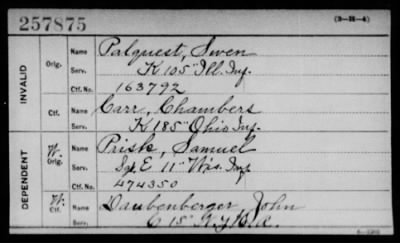 257875
(3-21-4)
INVALID
Orig. Name Palquest, Swen
Serv. K 105" Ill. Inf.
Ctf. No. 163792
Ctf. Name Carr, Chambers
Serv. K 185" Ohio Inf.
DEPENDENT
W. Orig. Name Prisk, Samuel
Serv. Sgt. E 11" Wis. Inf.
Ctf. No. 474350
W. Ctf. Name Daubenberger, John
Serv. C 15" N.Y.